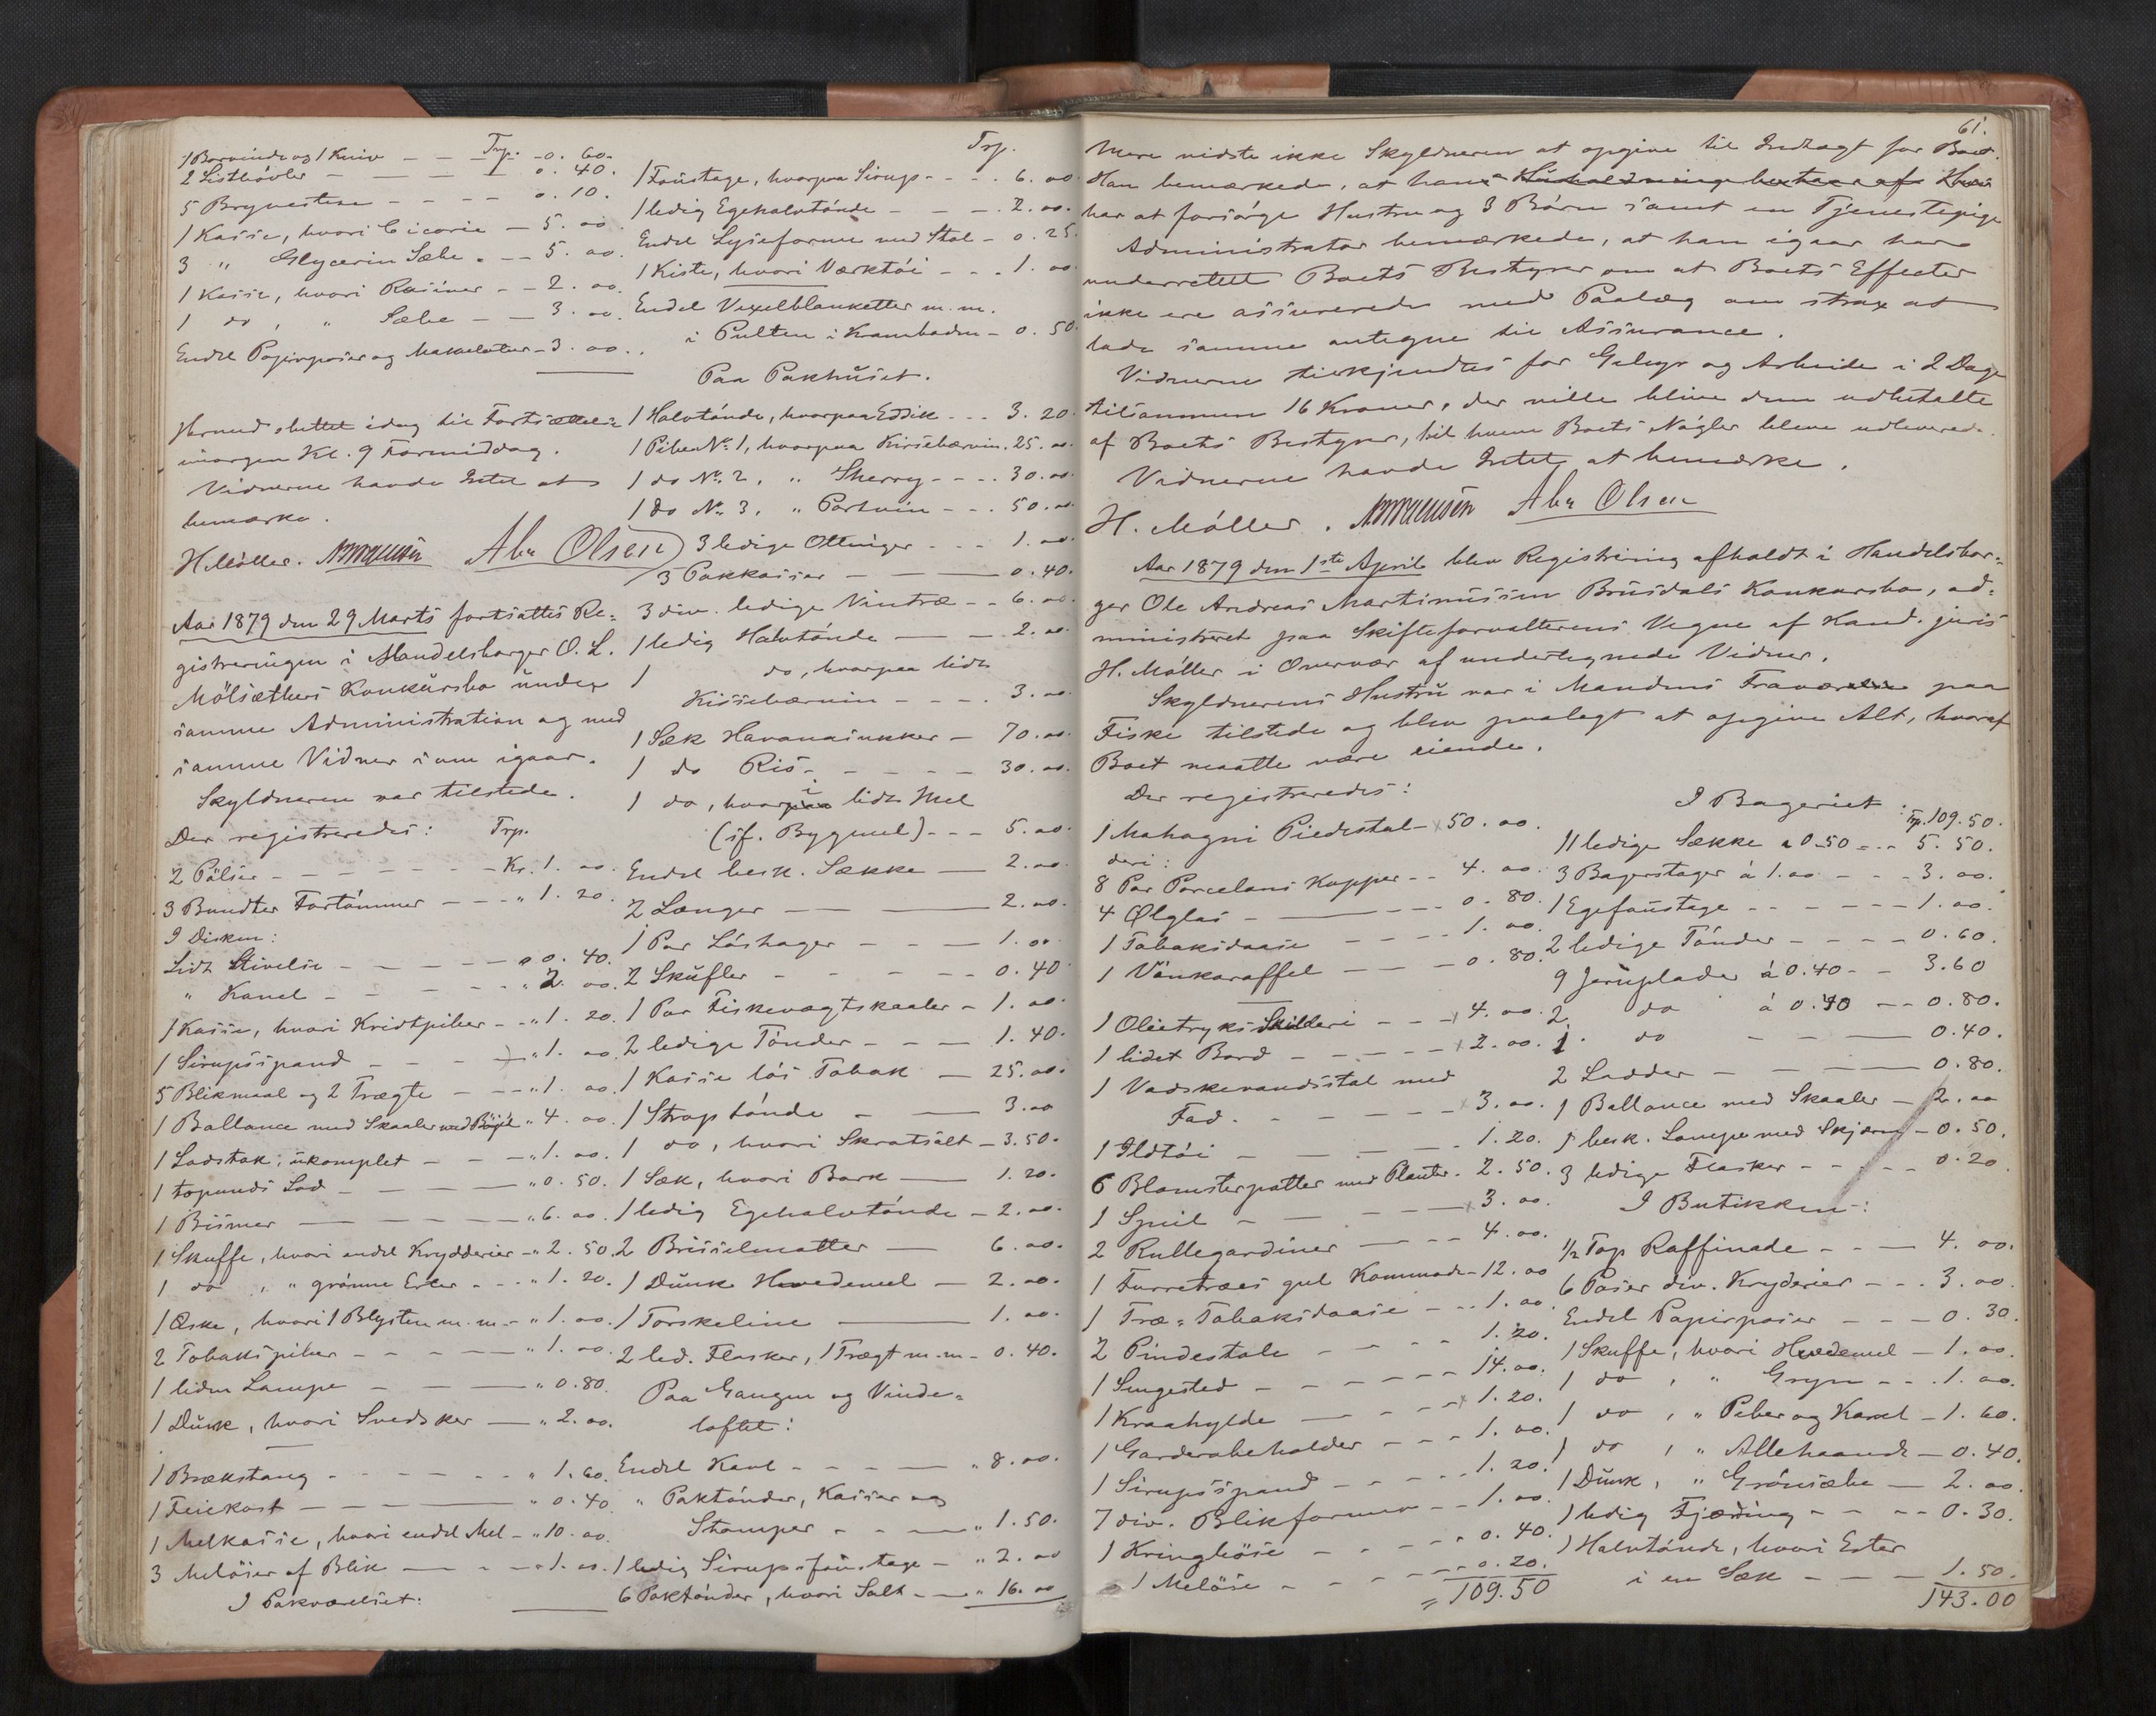 Trp.
1 Borvinde og 1 Kniv — — 0. 60.
2 Listhøvler — — — 0. 40.
5 Brynestene — — — 0. 10.
1 Kasse, hvori Cicorie — 5. 00
3 " Glycerin Sæbe — 5. 00.
1 Kasse, hvori Rosiner — 2. 00.
1 do, " Sæbe — — 3. 00
Endel Papirposer og Makulatur — 3. 00.
Hermed sluttet idag til Fortsættelse
imorgen Kl. 9 Formiddag.
Vidnerne havde Intet at
bemærke.
H. Møller. Abr Olsen
Aar 1879 den 29 Marts fortsattes Re=
gistreringen i Handelsborger O. L.
Mølsæthers Konkursbo under
samme Administration og med
samme Vidner som igaar.
Skyldneren var tilstede.
Der registreredes: Trp.
2 Pølser — — — Kr. 1. 00.
3 Bundter Fortømmer — — " 1. 20.
I Disken:
Lidt Stivelse — — — " 0. 40.
" Kanel — — — " 2. 00.
1 Kasse, hvori Kridtpiber — " 1. 20.
1 Sirupsspand — — " 1. 00.
5 Blikmaal og 2 Trægte — " 1. 00.
1 Ballance med Skaaler med Bøile " 4. 00.
1 Lodstok, ukomplet — — " 1. 00.
1 topunds Lod — — " 0. 50.
1 Bismer — — " 6. 00.
1 Skuffe, hvori endel Krydderier — " 2. 50.
1 do, " grønne Erter — " 1. 20.
1 Æske, hvori 1 Blysten m. m. — " 1. 00.
2 Tobakspiber — — " 1. 00.
1 liden Lampe — — " 0. 80.
1 Dunk, hvori Svedsker — " 2. 00.
1 Brækstang — — " 1. 60.
1 Feiekost — — " 0. 40.
1 Melkasse, hvori endel Mel — " 10. 00
3 Meløser af Blik — — " 1. 00.
I Pakværelset:
Trp.
1 Foustage, hvorpaa Sirup — 6. 00
1 ledig Egehalvtønde — — 2. 00.
Endel Lyseforme med Stol — 0. 25.
1 Kiste, hvori Værktøi — — 1. 00
Endel Vexelblanketter m. m.
i Pulten i Kramboden — 0. 50.
Paa Pakhuset.
1 Halvtønde, hvorpaa Eddik — 3. 20.
1 Pibe No 1, hvorpaa Kirsebærvin. 25. 00.
1 do No 2, " Sherry — 30. 00.
1 do No 3, " Portvin — 50. 00
3 ledige Ottinger — 1. 00
3 Pakkasser — — 0. 40.
3 div. ledige Vintræ — 6. 00
1 ledig Halvtønde — 2. 00.
1 do, hvorpaa lidt
Kissebærvin — — 3. 00
1 Sæk Havanasukker — 70. 00.
1 do Ris — — 30. 00.
1 do, hvori lidt Mel
(sf. Bygmel) — 5. 00
Endel besk. Sække — 2. 00
2 Længer — — 2. 00.
1 Par Laashager — — 1. 00
2 Skufler — — 0. 40
1 Par Fiskevægtskaaler — 1. 00.
2 ledige Tønder — — 1. 40.
1 Kasse løs Tobak — 25. 00.
1 Straptønde — — 3. 00
1 do, hvori Skratsalt — 3. 50.
1 Sæk, hvori Bark — 1. 20.
1 ledig Egehalvtønde — 2. 00.
2 Brisselmatter — 6. 00.
1 Dunk Hvedemel — 2. 00.
1 Torskeline — 1. 00.
2 led. Flasker, 1 Trægt m. m. — 0. 40.
Paa Gangen og Vinde=
loftet:
Endel Kavl — — " 8. 00.
" Paktønder, Kasser og
Stamper — — " 1. 50.
1 ledig Sirupsfoustage — " 2. 00
6 Paktønder, hvori Salt — " 16. 00
61.
Mere vidste ikke Skyldneren at opgive til Indtægt for Boet.
Han bemærkede, at han
har at forsørge Hustru og 3 Børn samt en Tjenestepige
Administrator bemærkede, at han igaar har
underrettet Boets Bestyrer om at Boets Effecter
ikke ere assurerede med Paalæg om strax at
lade samme antegne til Assurance.
Vidnerne tilkjendtes for Gebyr og Arbeide i 2 Dage
tilsammen 16 Kroner, der ville blive dem udbetalte
af Boets Bestyrer, til hvem Boets Nøgler bleve udleverede.
Vidnerne havde Intet at bemærke.
H. Møller. Abr Olsen
Aar 1879 den 1ste April blev Registrering afholdt i Handelsbor=
ger Ole Andreas Martinussen Brusdals Konkursbo, ad=
ministreret paa Skifteforvalterens Vegne af Kand. juris
H. Møller i Overvær af undertegnede Vidner.
Skyldnerens Hustru var i Mandens Fravær paa
Fiske tilstede og blev paalagt at opgive Alt, hvoraf
Boet maatte være eiende.
Der registreredes:
1 Mahagni Piedestal — 50. 00.
deri:
8 Par Porcelans Kopper — 4. 00.
4 Ølglas — — 0. 80.
1 Tobaksdaase — — 1. 00.
1 Vinkaraffel — — 0. 80.
1 Olietryks Skilderi — 4. 00.
1 lidet Bord — — 2. 00.
1 Vadskevandsstol med
Fad. — — 3. 00.
1 Ildtøi — — 1. 20.
6 Blomsterpotter med Planter. 2. 50.
1 Speil — — 3. 00.
2 Rullegardiner — 4. 00.
1 Furretræes gul Kommode — 12. 00
1 Træ=Tobaksdaase — 1. 00.
2 Pindestole — — 1. 20.
1 Sengested — — 14. 00.
1 Kraahylde — — 1. 20.
1 Garderobeholder — 1. 00.
1 Sirupsspand — — 1. 20.
7 div. Blikformer — 1. 00.
1 Kringløse — — 0. 40.
1 Meløse — — 0. 20.
= 109. 50
I Bageriet:
Trp. 109. 50.
11 ledige Sække a 0.50 — 5. 50.
3 Bagerstager á 1.00 — 3. 00.
1 Egefoustage — — 1. 00.
2 ledige Tønder — — 0. 60.
9 Jernplader á 0.40 — 3. 60
2 do á 0.40 — 0. 80.
1 do — — 0. 40.
2 Ladder — — 0. 80.
1 Ballance med Skaaler — 2. 00
1 besk. Lampe med Skjærm — 0. 50.
3 ledige Flasker — — 0. 20.
I Butikken:
1/2 Top Raffinade — — 4. 00.
6 Poser div. Kryderier — 3. 00
Endel Papirposer — 0. 30.
1 Skuffe, hvori Hvedemel — 1. 00.
1 do, " Gryn — 1. 00.
1 do, " Peber og Kanel — 1. 60.
1 do, " Allehaande — 0. 40.
1 Dunk, " Grønsæbe — 2. 00.
1 ledig Fjerding — 0. 30.
1 Halvtønde, hvori Erter
i en Sæk — — 1. 50.
143. 00